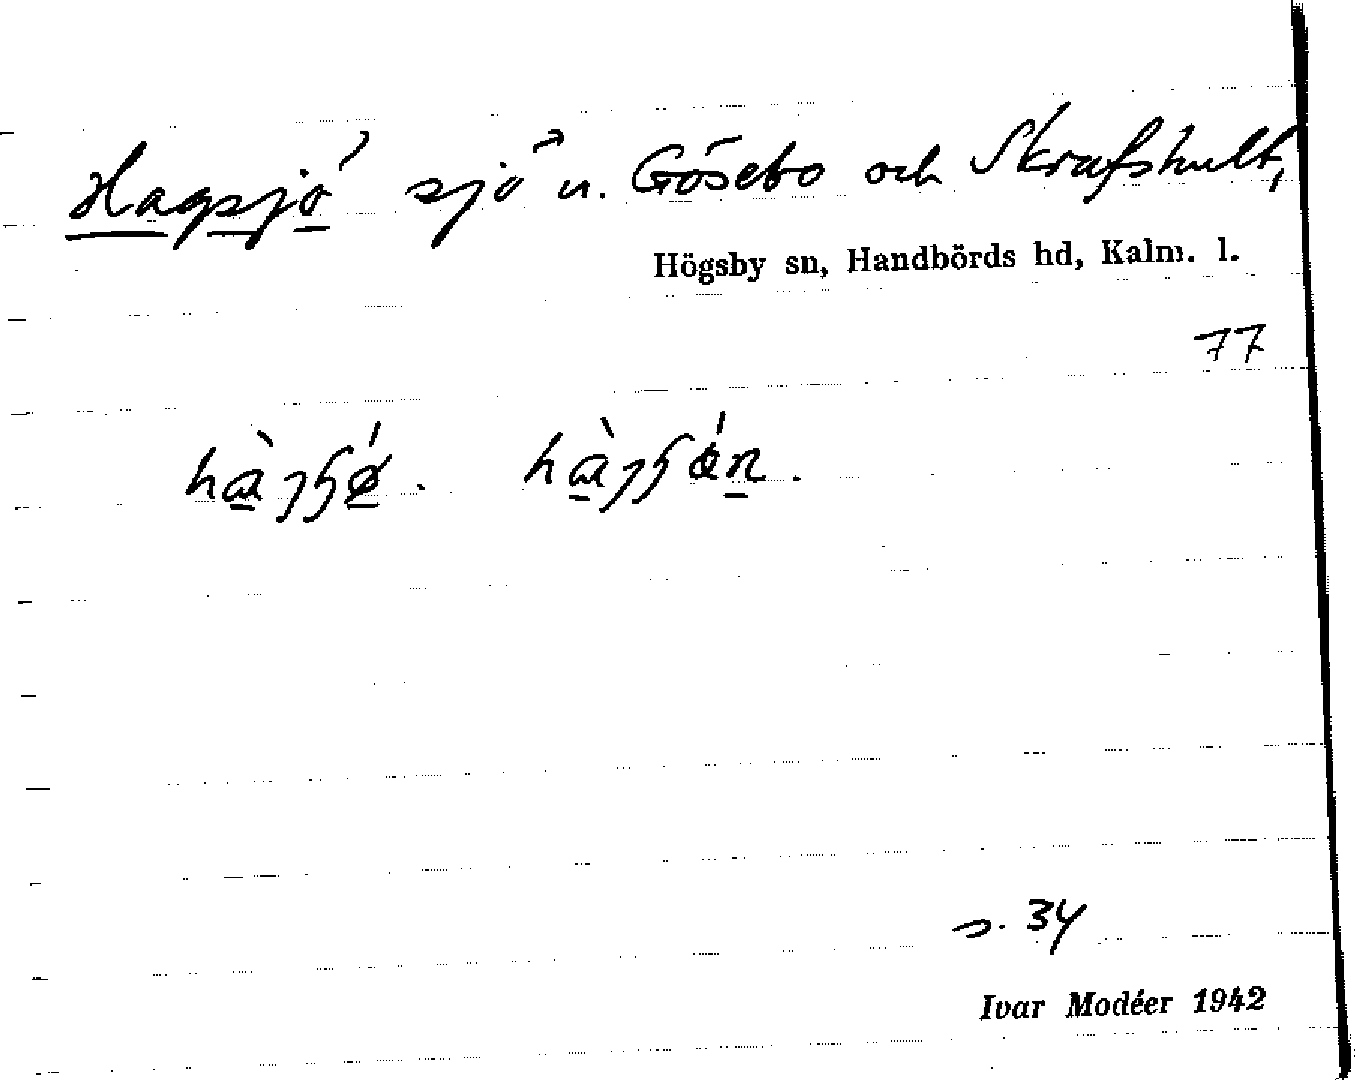 Hagsjö sjö u. Gösebo och Skrafshult,
Högsby sn, Handbörds hd, Kalm. l.
77
s. 34
Ivar Modéer 1942